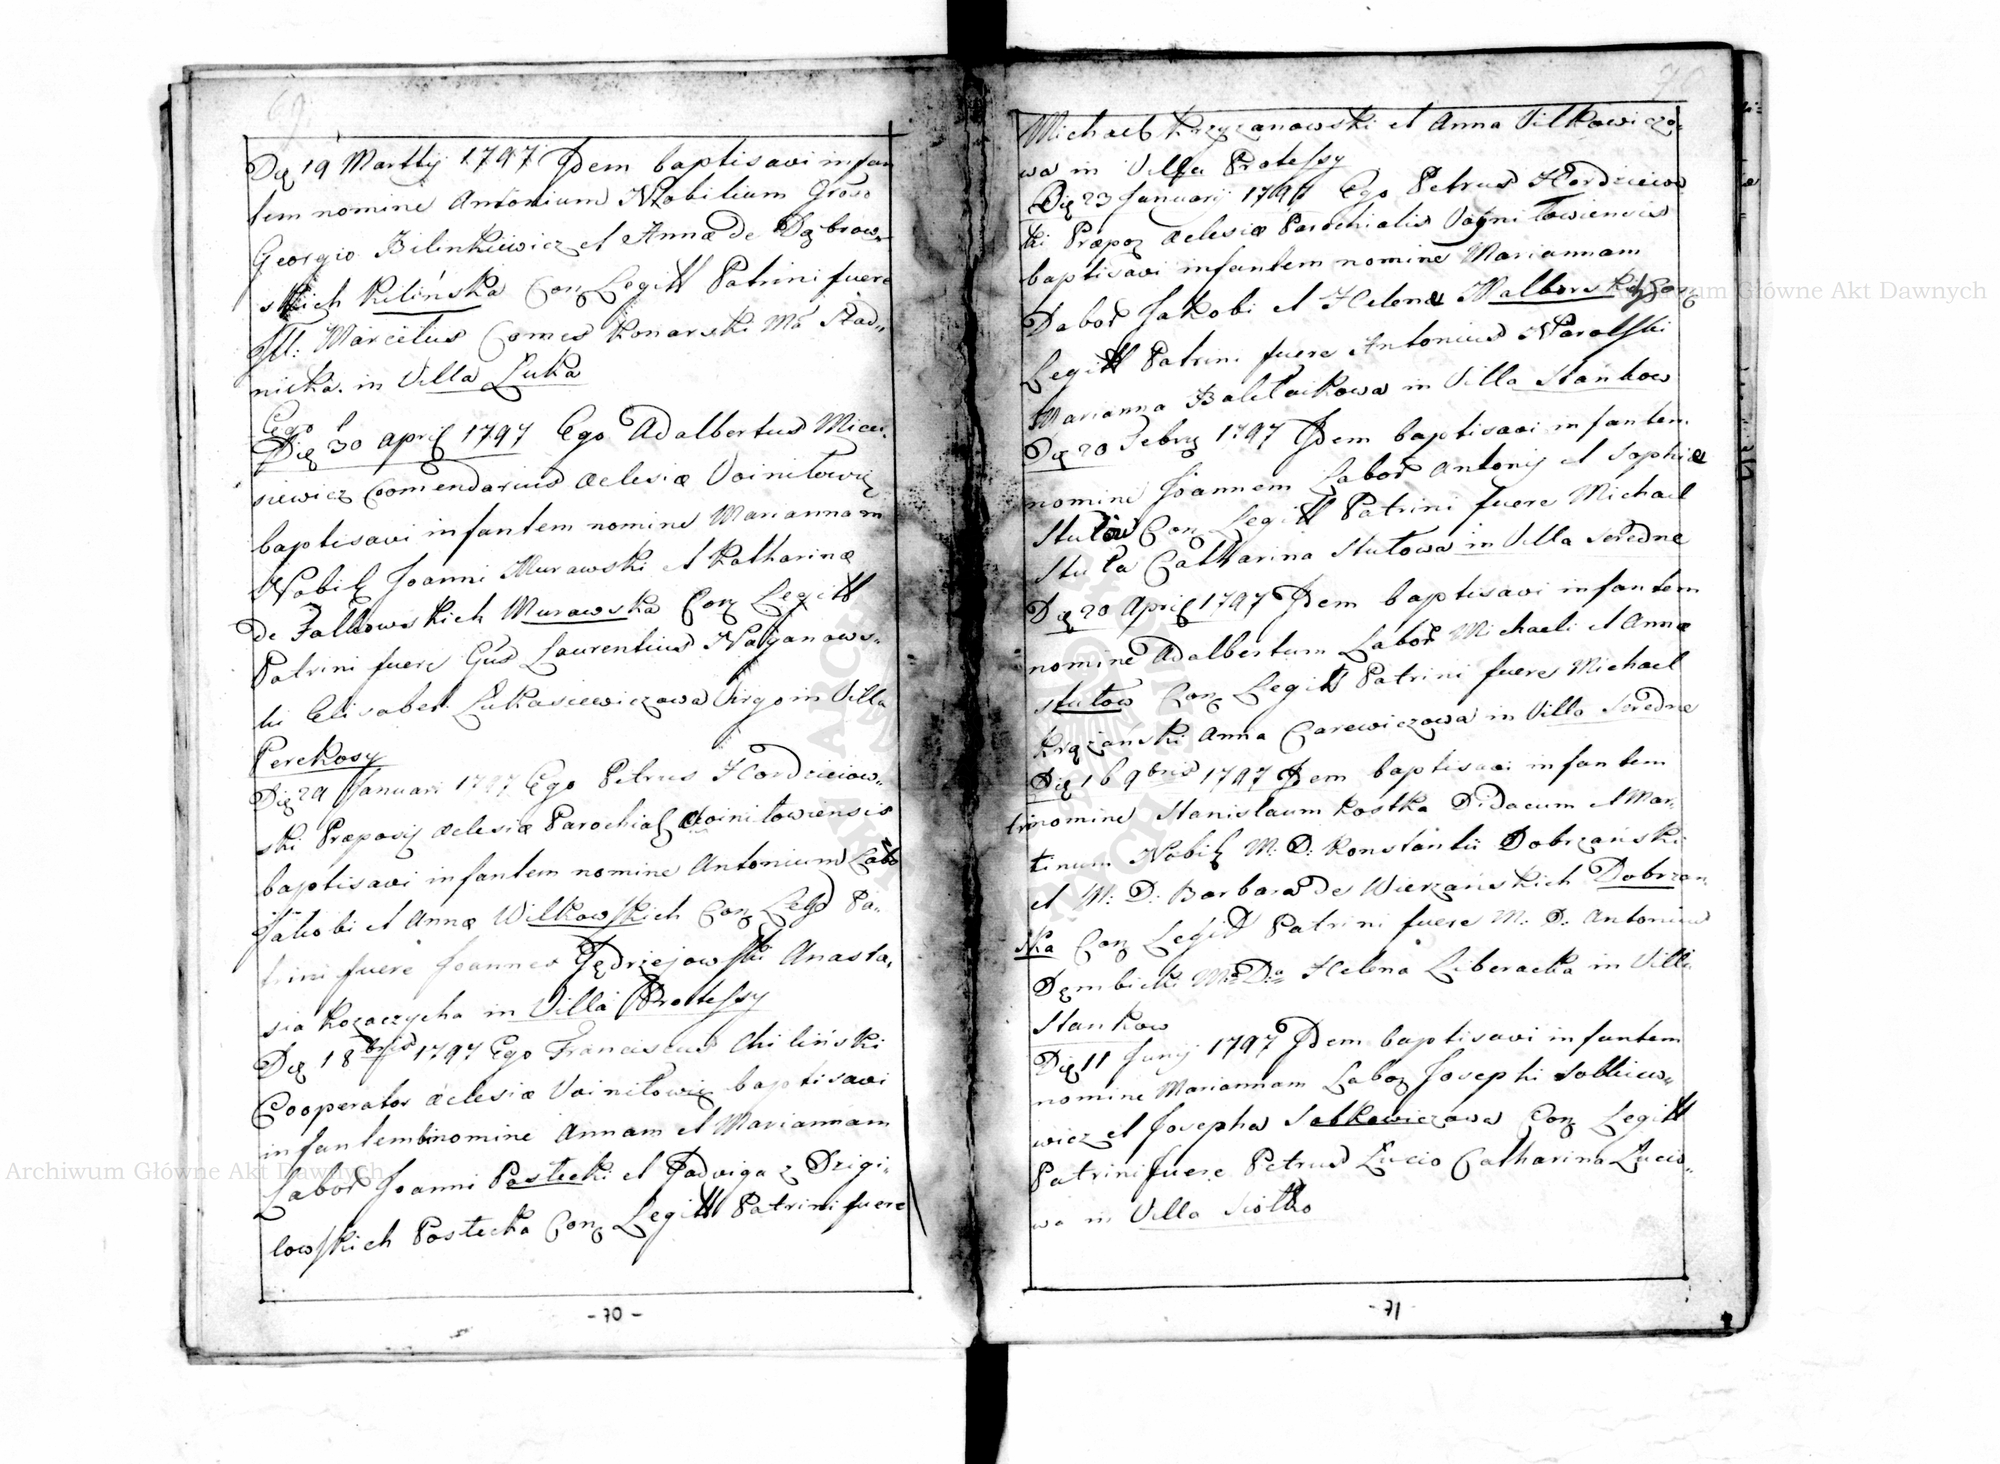 69.
Die 19 Martij 1797 Idem baptisavi infan
tem nomine Antonium Nobilium Groso
Georgio Bilinkiewicz et Annæ de Dąbrow-
skich Kilińska Conz Legitt Patrini fuere
Ill: Marcelus Comes Konarski Ma Stad-
nicka. in Villa Luka
Ego
Die 30 April 1797 Ego Adalbertus Micu-
siewicz Coomendarius Æclesiæ Voiniłowię
baptisavi infantem nomine Mariannam
Nobil Joanni Murawski et Katharinæ
de Falkowskich Murawska Conz Legitt
Patrini fuere Gus Laurentius Naganows-
ki Elisabet Łukasiewiczowa Virgo in Villa
Perekosy
Die 29 Januari 1797 Ego Petrus Hordzieiow-
ski Præposij Æclesiæ Parochial Woiniłowiensis
baptisavi infantem nomine Antonium Labo
Jakobi et Annæ Wilkowskich Conz Legd Pa-
trini fuere Joannes Jędrzejowski Anasta-
sia Kozaczycha in Villa Protessy
Die 18 bris 1797 Ego Franciscus Chiliński
Cooperator Æclesiæ Voiniłowię baptisavi
infantem nomine Annam et Mariannam
Labor Joanni Pastecki et Jadviga z Dzigi-
lowskich Postecka Conz Legitt Patrini fuere
- 70 -
70
Michael Krzyzanowski et Anna Vilkowiczo-
wa in Villa Protessy
Die 23 Januarij 1797 Ego Petrus Hordzieiow
ki Præpoz Æclesiæ Parochialis Voyniłowiensis
baptisavi infantem nomine Mariannam
Dabor Jakobi et Helenæ Malborskch Conz
Legitt Patrini fuere Antonius Narolski
Marianna Balcłaikowa in Villa Stankow
Die 20 Febry 1797 Idem baptisavi infantem
nomine Joannem Labor Antonij et Sophiæ
Stułow Conz Legitt Patrini fuere Michael
Stuła Catharina Stułowa in Villa Seredne
Die 20 April 1797 Idem baptisavi infantem
nomine Adalbertum Labor Michaeli et Annæ
Stułow Conz Legitt Patrini fuere Michael
Krążański Anna Carewiczowa in Villa Seredne
Die 16 9bris 1797 Idem baptisavi infantem
nomine Stanisłaum Kostka Didacum et Mar-
tinum Nobil M: D: Konstantii Dobrzański
et M: D: Barbara de Wierzańskich Dobrzan-
ska Conz Legitt Patrini fuere M: D: Antonius
Dęmbicki Ma Da Helena Liberacka in Villa
Stankow
Die 11 Junij 1797 Idem baptisavi infantem
nomine Mariannam Laboz Josephi Sotkiew-
wicz et Josepha Sotkowiczowa Conz Legitt
Patrini fuere Petrus Lucio Catharina Lucio-
wa in Villa Siołko
- 71 -
Archiwum Główne Akt Dawnych
Archiwum Główne Akt Dawnych